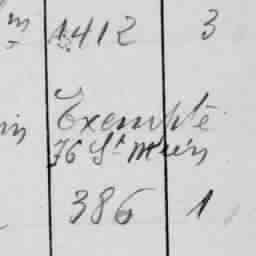 1412 3
Exempté
76 St Méen
386 1